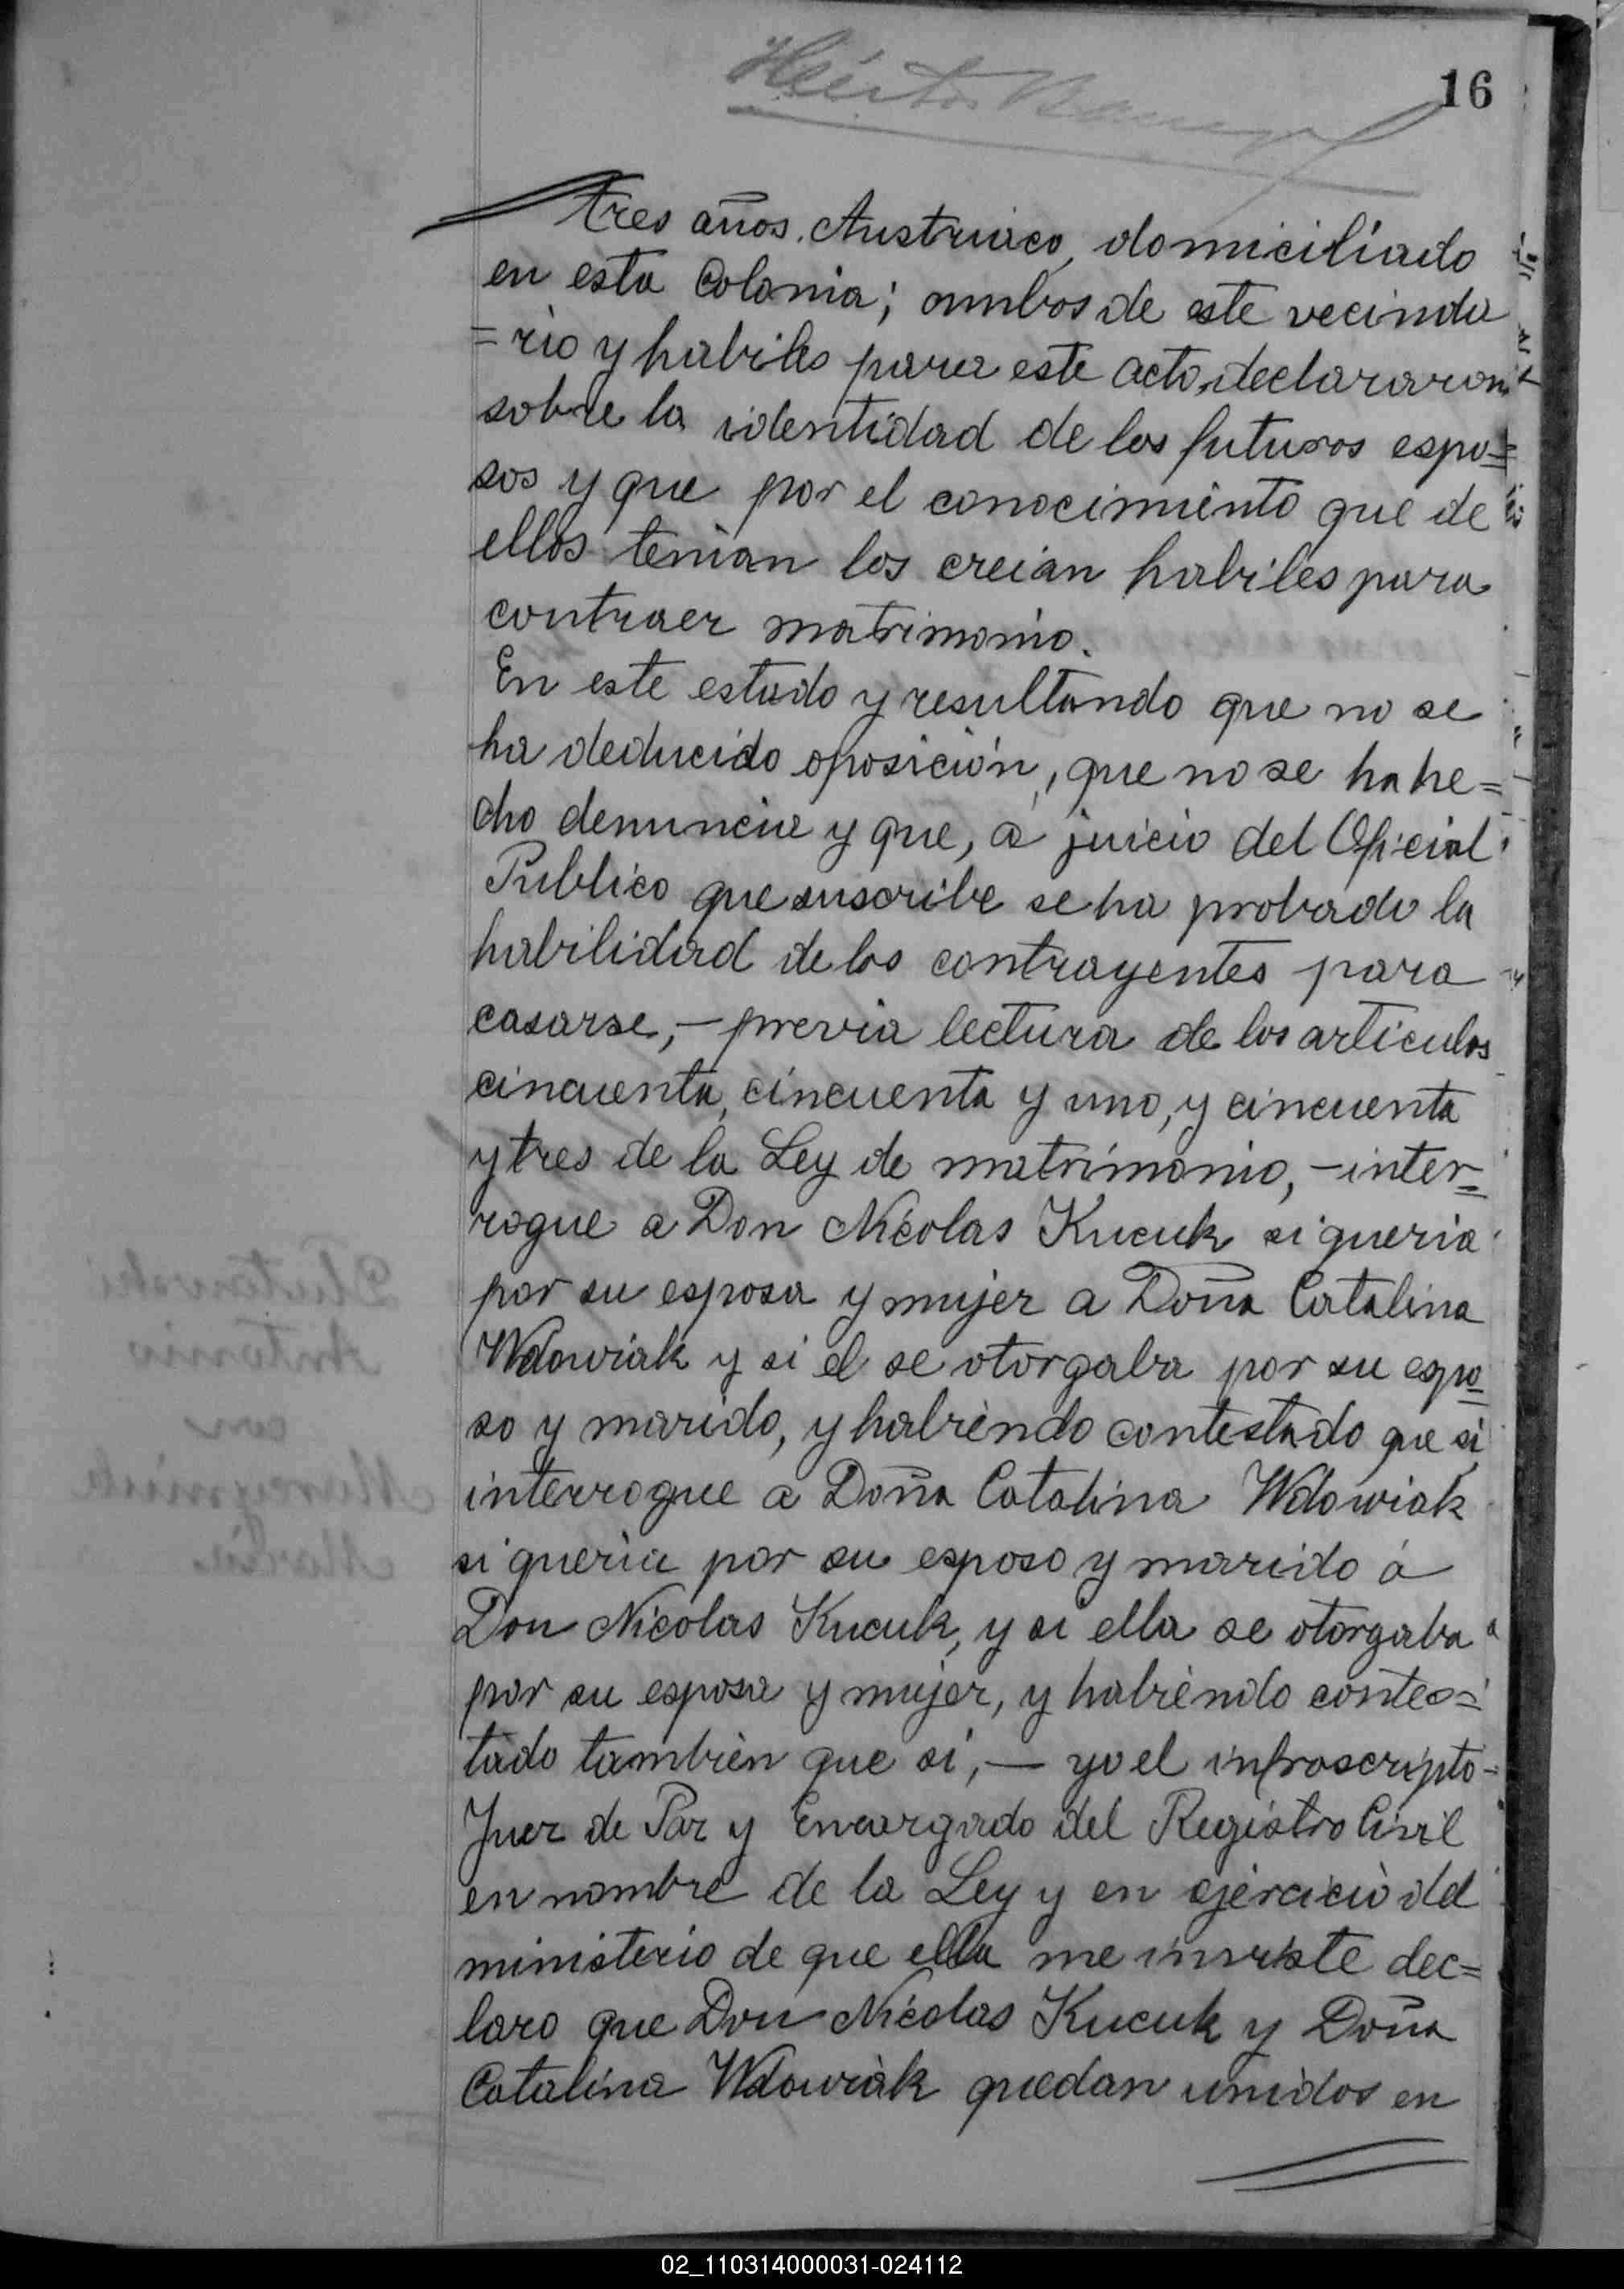 Héctor
16
tres años. Austriaco, domiciliado
en esta Colonia; ambos de este vecinda
=rio y habiles para este acto, declararon
sobre la identidad de los futuros espo=
sos y que por el conocimiento que de
ellos tenian los creian habiles para
contraer matrimonio.
En este estado y resultando que no se
ha deducido oposición, que no se ha he=
cho denuncia y que, a juicio del Oficial
Publico que suscribe se ha probado la
habilidad de los contrayentes para
casarse, - previa lectura de los articulos
cincuenta, cincuenta y uno, y cincuenta
y tres de la Ley de matrimonio, - inter=
rogue a Don Nicolas Kucuk si queria
por su esposa y mujer a Doña Catalina
Wdowiak y si el se otorgaba por su espo=
so y marido, y habiendo contestado que si,
interrogue a Doña Catalina Wdowiak
si queria por su esposo y marido á
Don Nicolas Kucuk, y si ella se otorgaba
por su esposa y mujer, y habiendo contes=
tado también que si, — yo el infroscripto
Juez de Paz y Encargado del Registro Civil
en nombre de la Ley y en ejercicio del
ministerio de que ella me inviste dec=
laro que Don Nicolas Kucuk y Doña
Catalina Wdowiak quedan unidos en
02_110314000031-024112